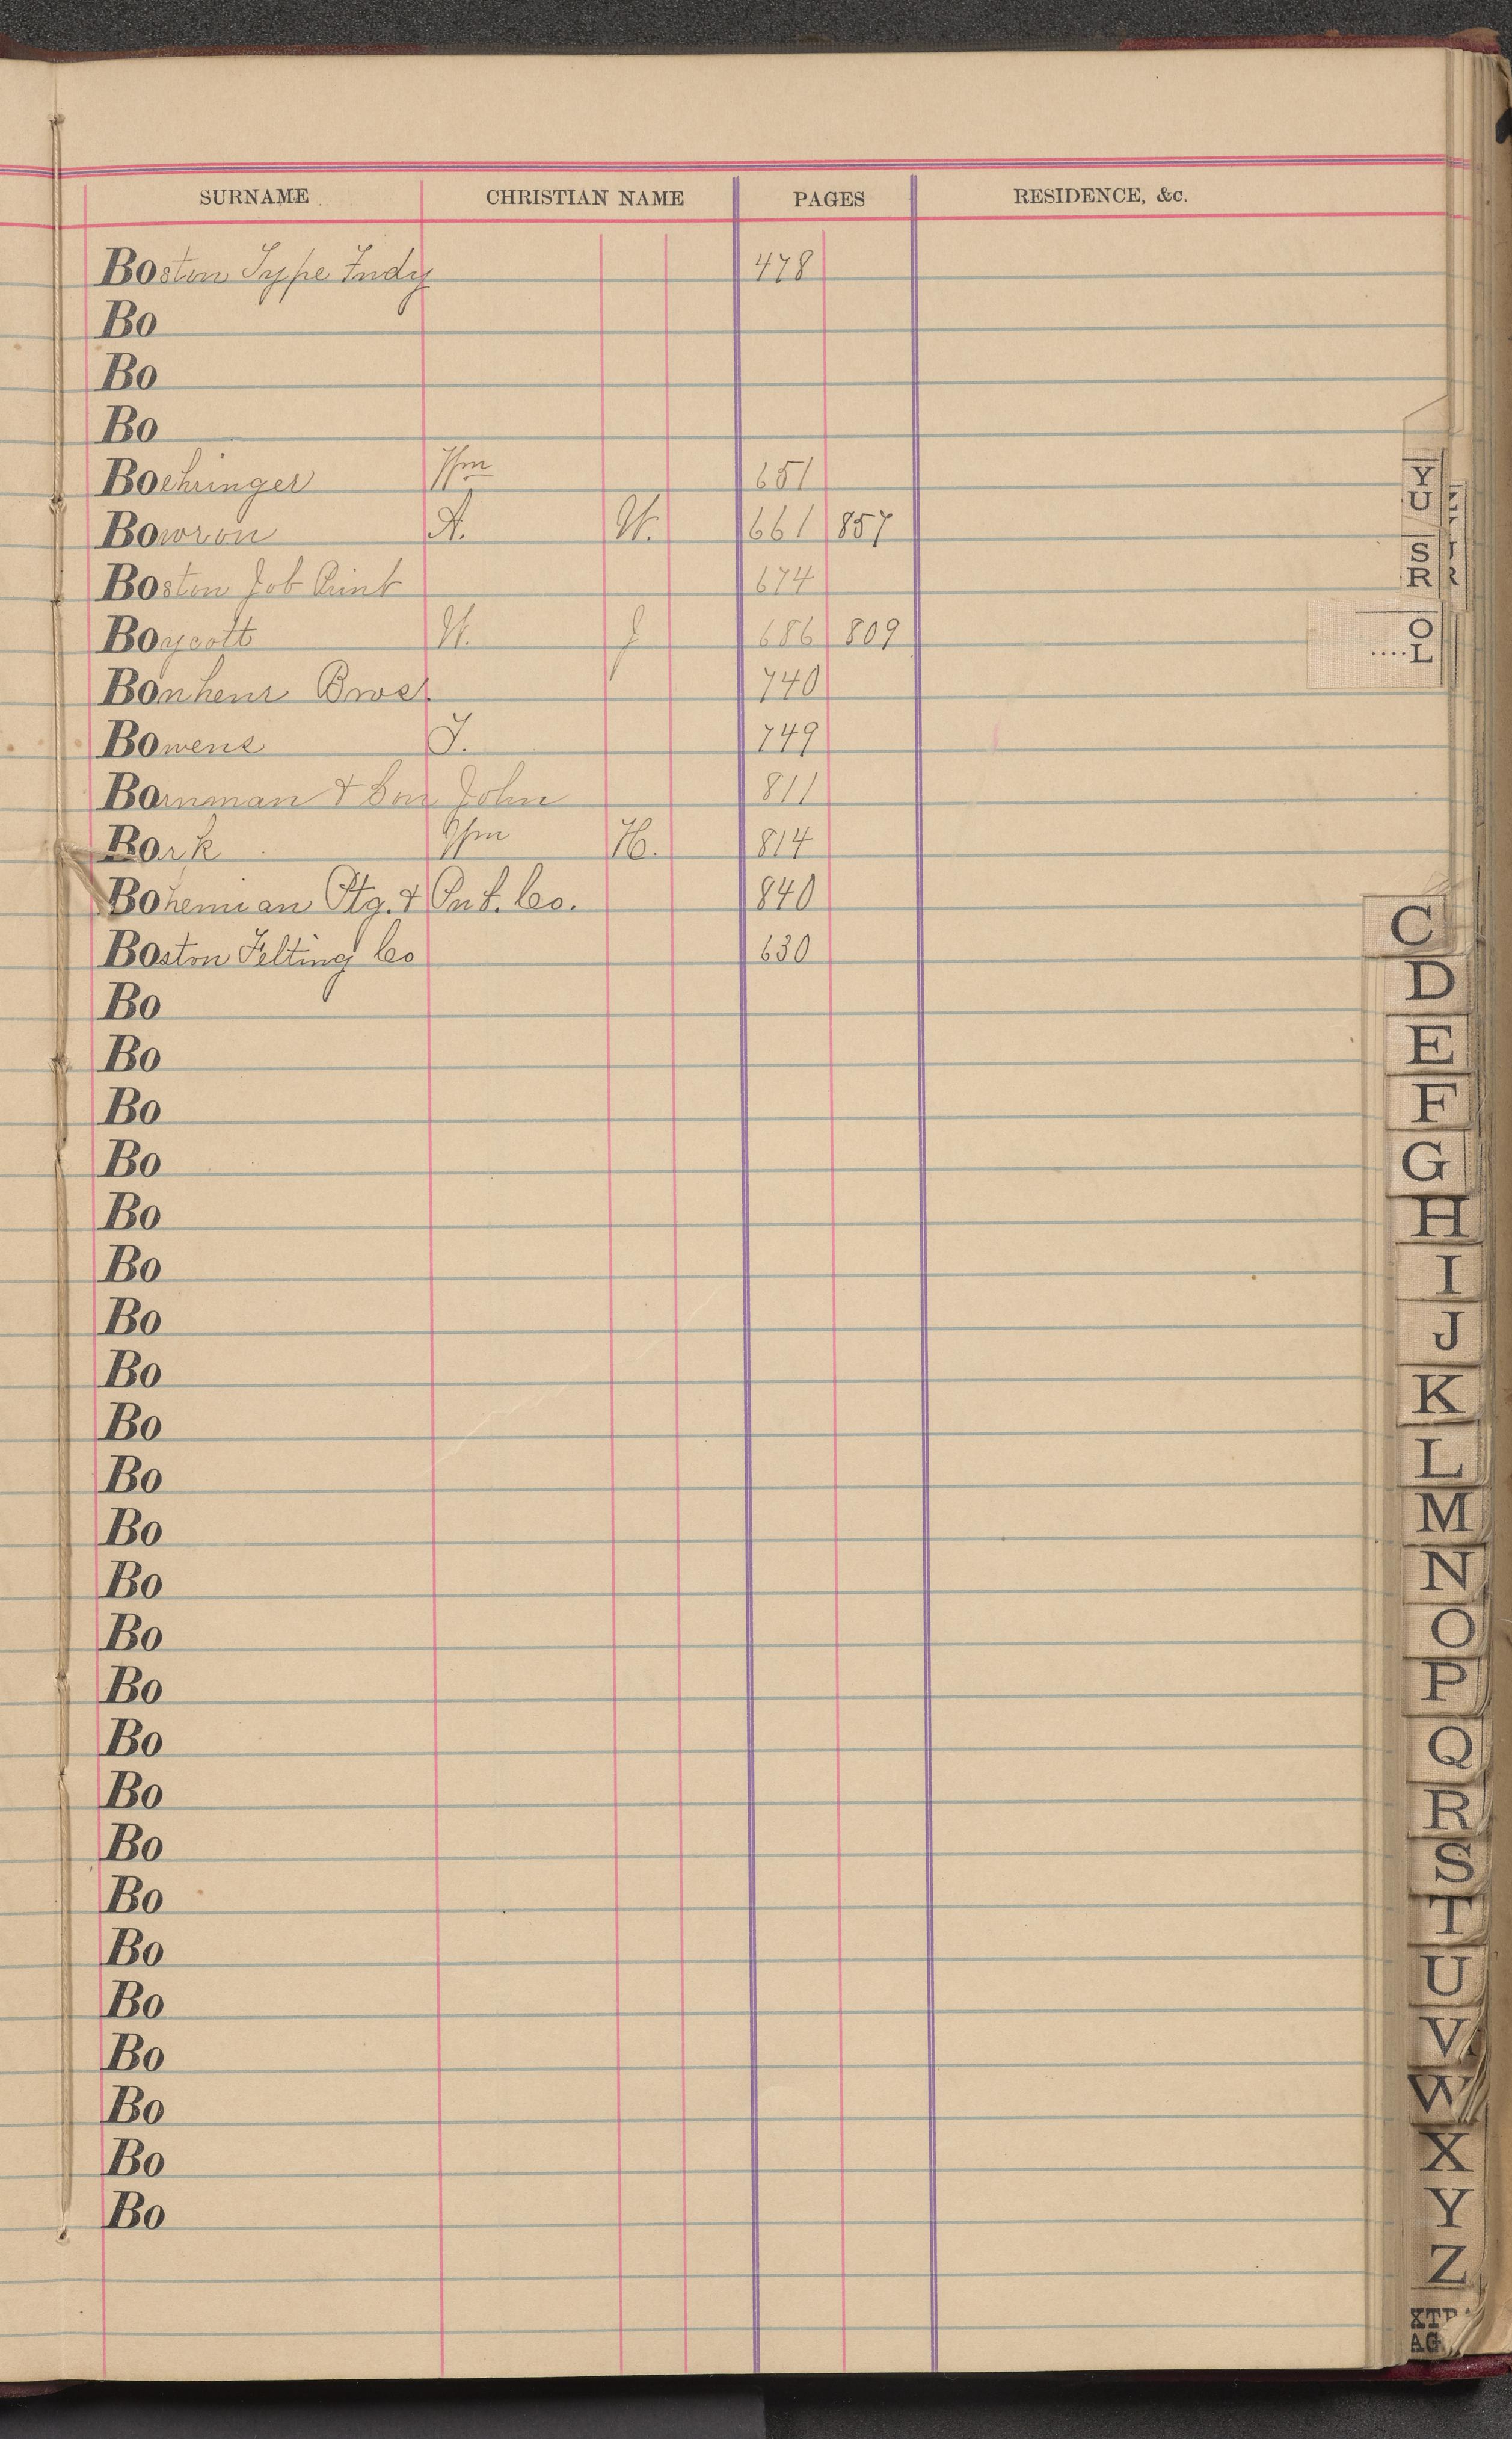 SURNAME CHRISTIAN NAME PAGES RESIDENCE, &c.
Boston Type Fndy 478
Bo
Bo
Bo
Boehringer Wm 651
Bowron A. W. 661 857
Boston Job Print 674
Boycott W. J 686 809
Bonheur Bros. 740
Bowens T. 749
Bornman & Son John 811
Bork Wm H. 814
Bohemian Ptg. & Pub. Co. 840
Boston Felting Co 630
Bo
Bo
Bo
Bo
Bo
Bo
Bo
Bo
Bo
Bo
Bo
Bo
Bo
Bo
Bo
Bo
Bo
Bo
Bo
Bo
Bo
Bo
Bo
Bo
Y
U
S
R
O
....L
C
D
E
F
G
H
I
J
K
L
M
N
O
P
Q
R
S
T
U
V
W
X
Y
Z